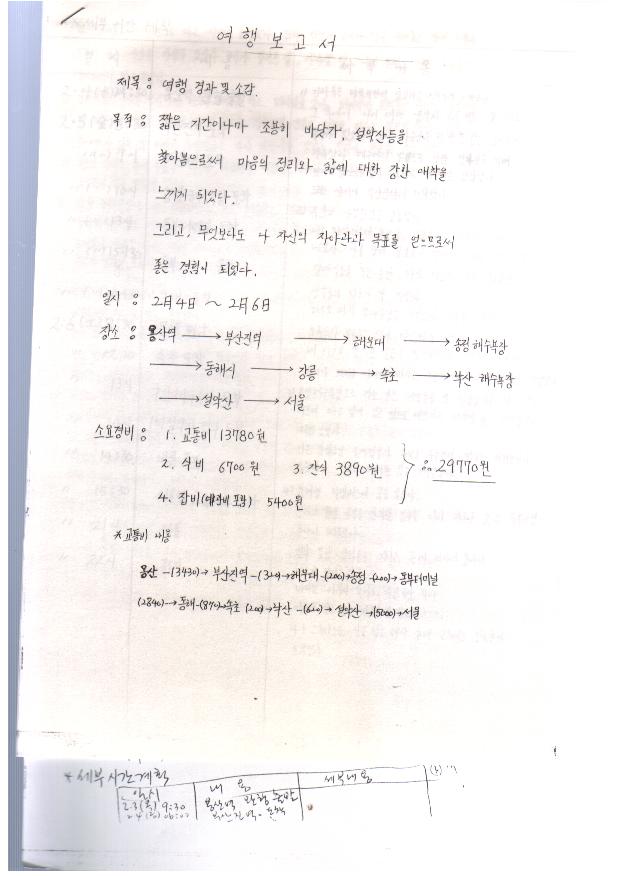 여행보고서
제목 : 여행 경과 및 소감.
목적 : 짧은 기간이나마 조용히 바닷가, 설악산등을
찾아봄으로써 마음의 정리와 삶에 대한 강한 애착을
느끼게 되었다.
그리고, 무엇보다도 나 자신의 자아관과 목표를 얻으므로서
좋은 경험이 되었다.
일시 : 2月4日 ~ 2月6日
장소 : 용산역 → 부산진역 → 해운대 → 송정 해수욕장
→ 동해시 → 강릉 → 속초 → 낙산 해수욕장
→ 설악산 → 서울
소요경비 : 1. 교통비 13780원
2. 식비 6700원 3. 간식 3890원 ∴ 29770원
4. 잡비 5400원
* 교통비 내용
용산 -(3430)→ 부산진역 -(320)→ 해운대 -(200)→ 송정 -(200)→ 동부터미널
(2840)→ 동해 -(870)→ 속초 (200)→ 낙산 -(620)→ 설악산 →(5000)→ 서울
* 세부시간계획
일시 내용 세부내용
2.3(목) 9:30 용산역 출발
2.4(금) 06:00 부산진역